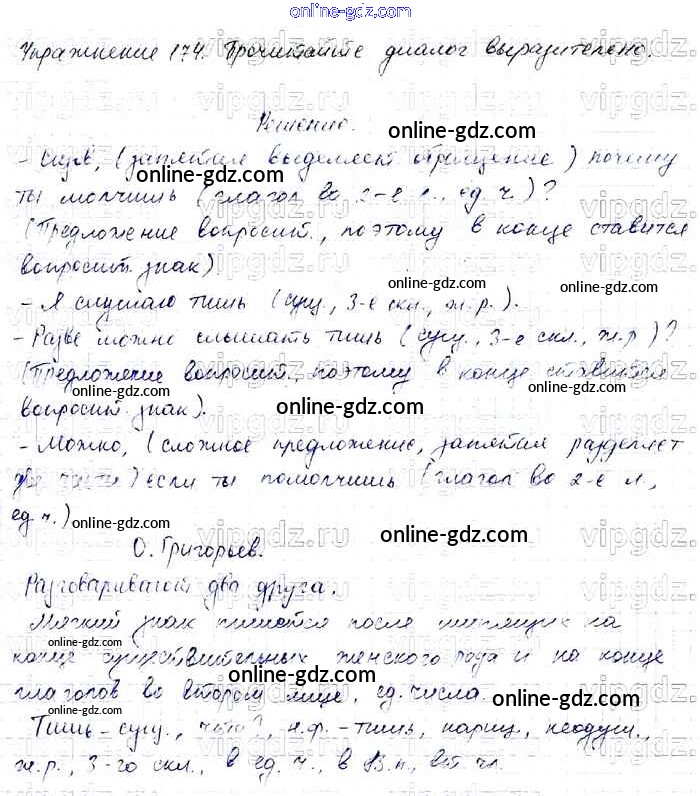 online-gdz.com
Упражнение 174. Прочитайте диалог выразительно.
Решение.
online-gdz.com
- (запятая выделяет обращение) почему
ты молчишь (глагол во 2-е л., ед. ч.)?
online-gdz.com
(Предложение вопросит., поэтому в конце ставится
вопросит. знак)
online-gdz.com
- Я слушаю тишь (сущ., 3-е скл., ж.р.).
- Разве можно слышать тишь (сущ., 3-е скл., ж.р)?
(Предложение вопросит., поэтому в конце ставится
online-gdz.com
вопросит. знак).
online-gdz.com
- Можно, (сложное предложение, запятая разделяет
две части) если ты помолчишь (глагол во 2-е л.,
ед ч.)
online-gdz.com
online-gdz.com
О. Григорьев.
Разговаривают два друга.
online-gdz.com
Мягкий знак пишется после шипящих на
online-gdz.com
конце существительных женского рода и на конце
глаголов во втором лице, ед. числа.
online-gdz.com
Тишь - сущ., что?, н.ф. - тишь, нариц., неодуш.,
ж.р., 3-го скл., в ед. ч., в В.п., вт. чл.
online-gdz.com